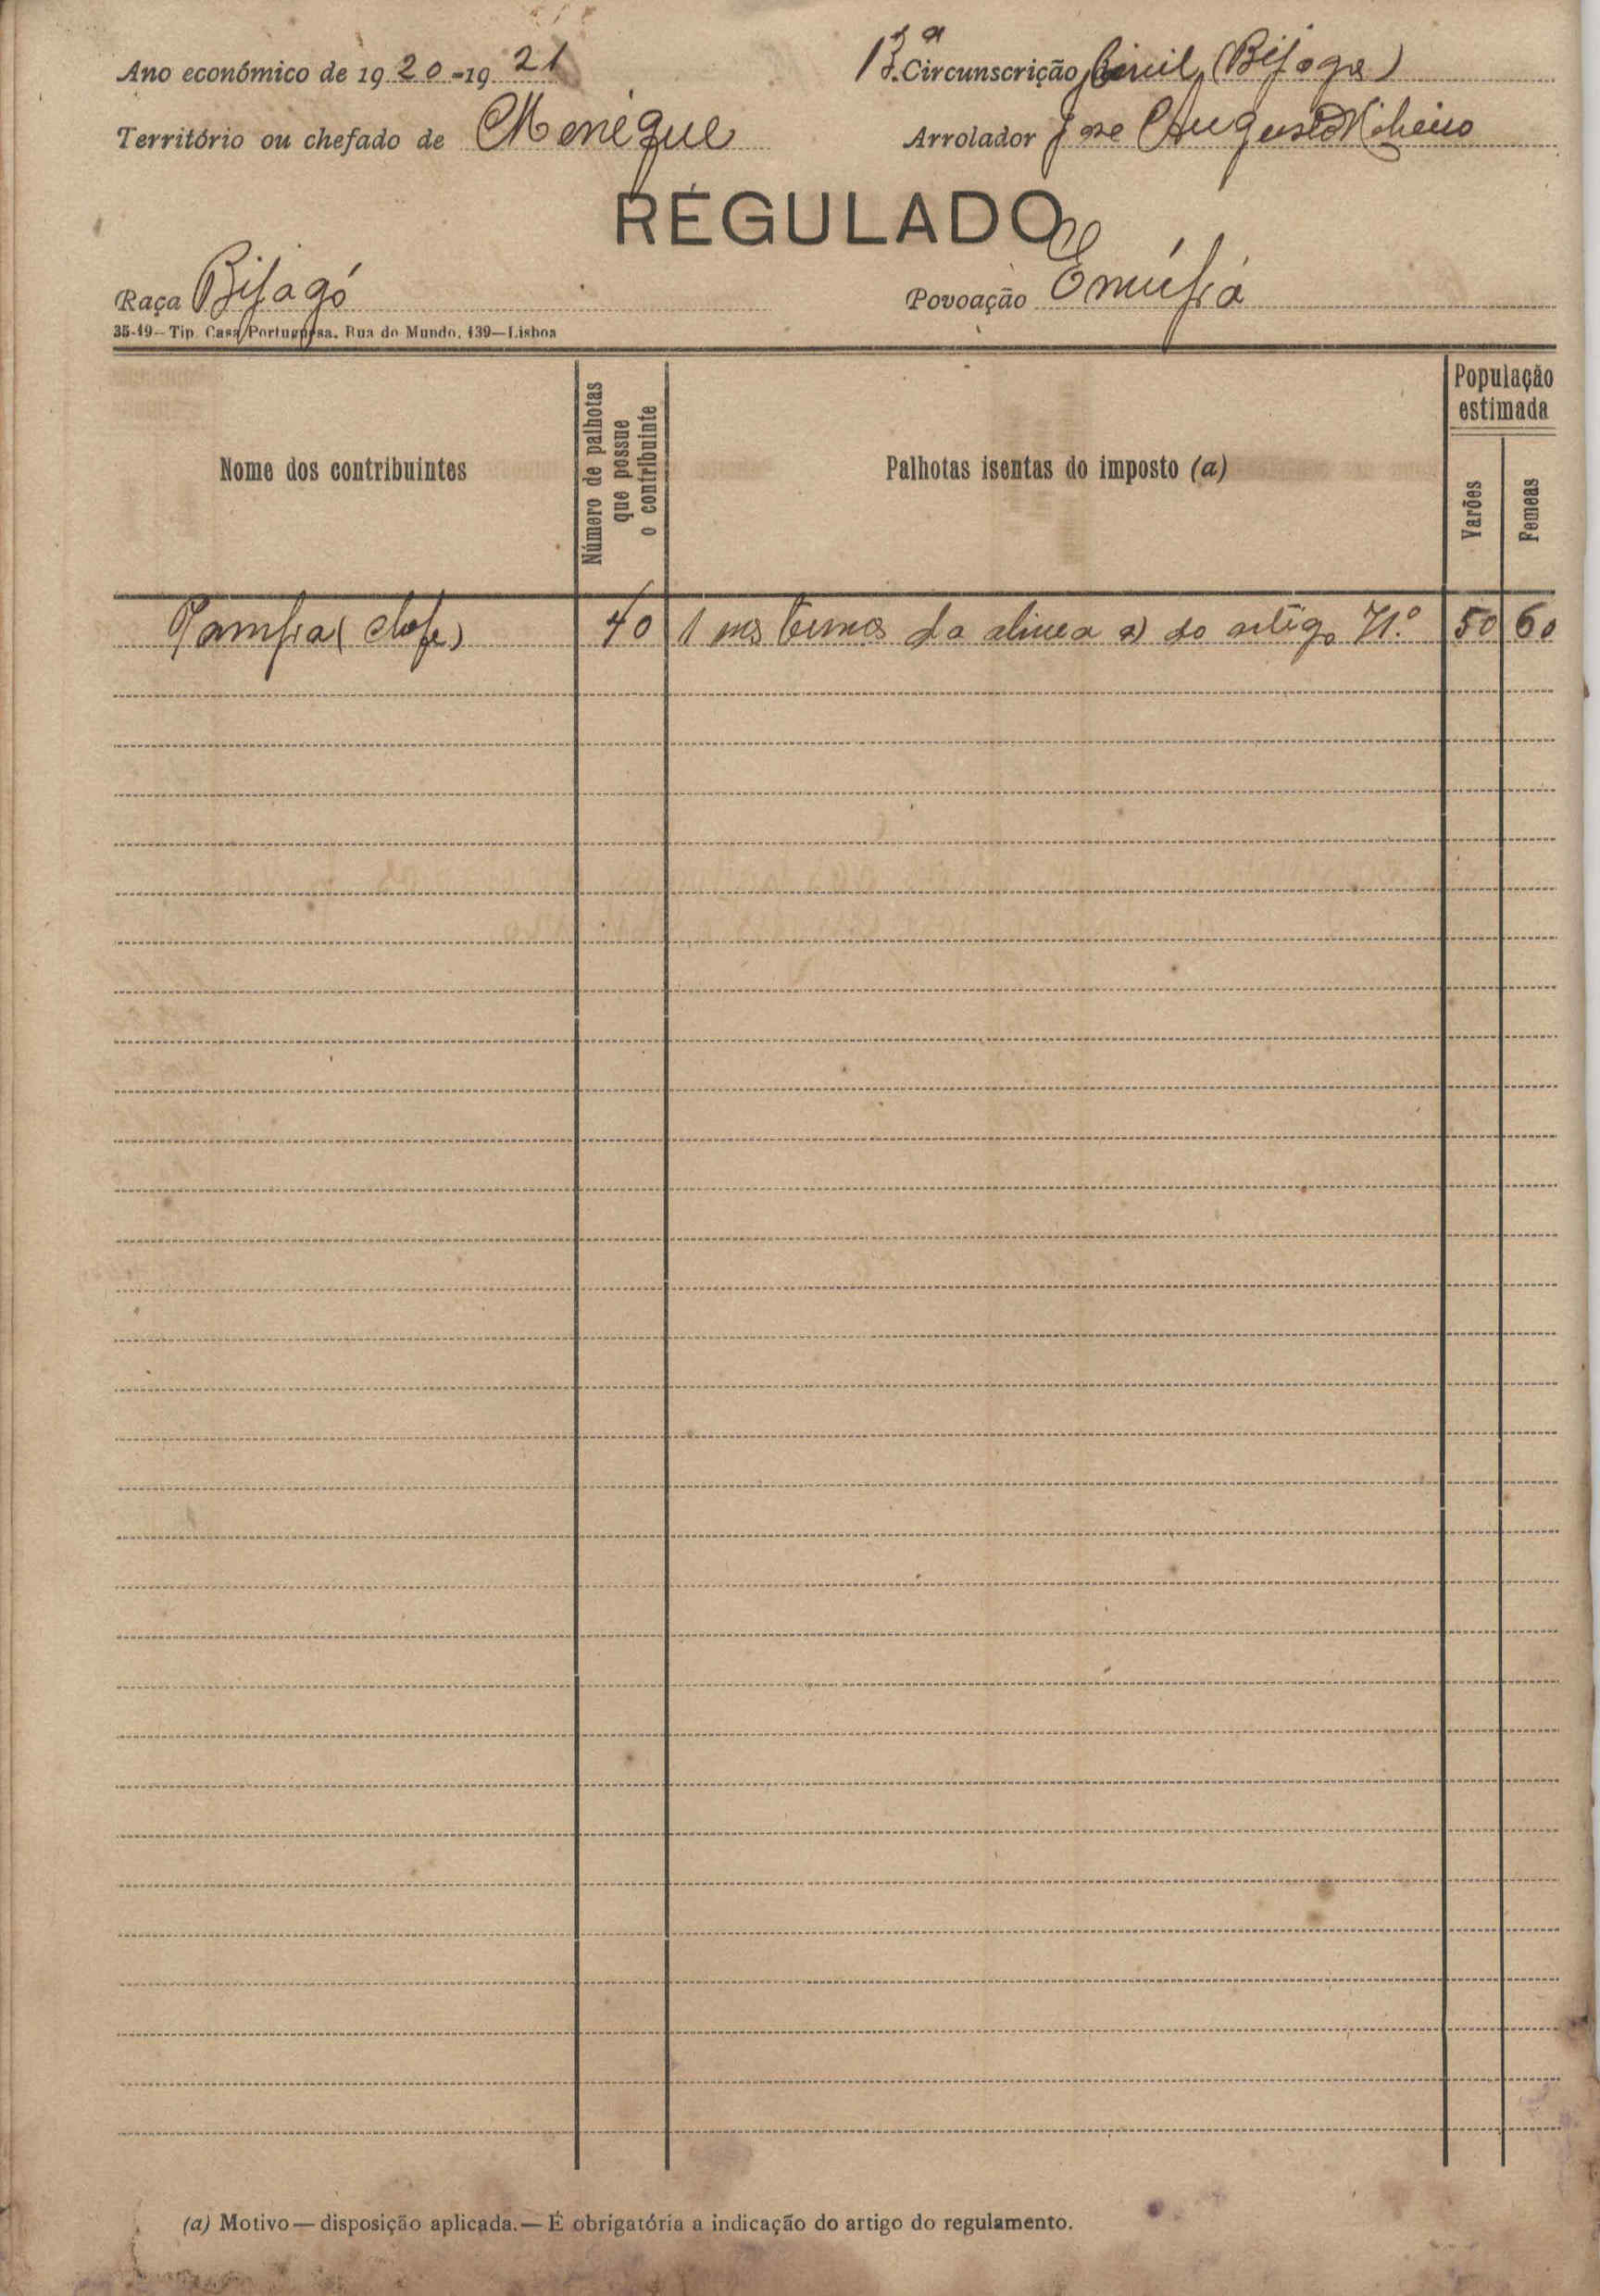 Ano económico de 1920-1921
13.ª Circunscrição Civil (Bijagós)
Território ou chefado de Meneque
Arrolador José Augusto Ribeiro
REGULADO
Raça Bijagó
Povoação
35-19—Tip. Casa Portuguesa, Rua do Mundo, 139—Lisboa
Nome dos contribuintes
Número de palhotas
que possue
o contribuinte
Palhotas isentas do imposto (a)
População
estimada
Varões
Femeas
(chefe) 40 1 nos termos da alinea a) do artigo 71.º 50 60
(a) Motivo—disposição aplicada.—É obrigatória a indicação do artigo do regulamento.